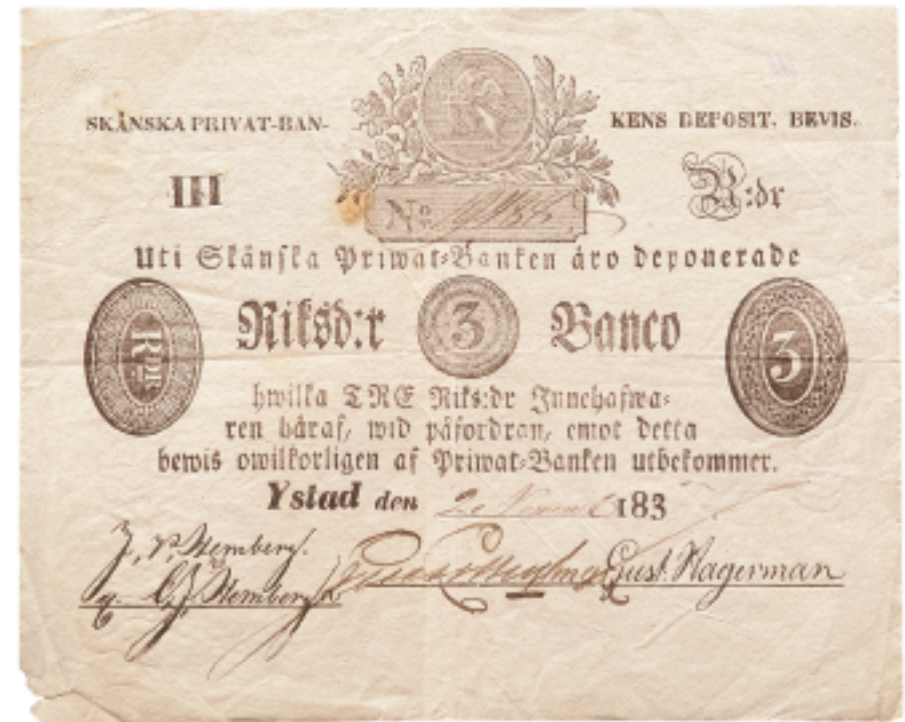 SKÅNSKA PRIVAT-BAN- KENS DEPOSIT. BEVIS.
III R:dr
No
Uti Skånska Priwat-Banken äro deponerade
RDR Riksd:r 3 Banco 3
hwilka TRE Riks:dr Innehafwa-
ren häraf, wid påfordran, emot detta
bewis owilkorligen af Priwat-Banken utbekommer.
Ystad den 183
Gust. Hagerman